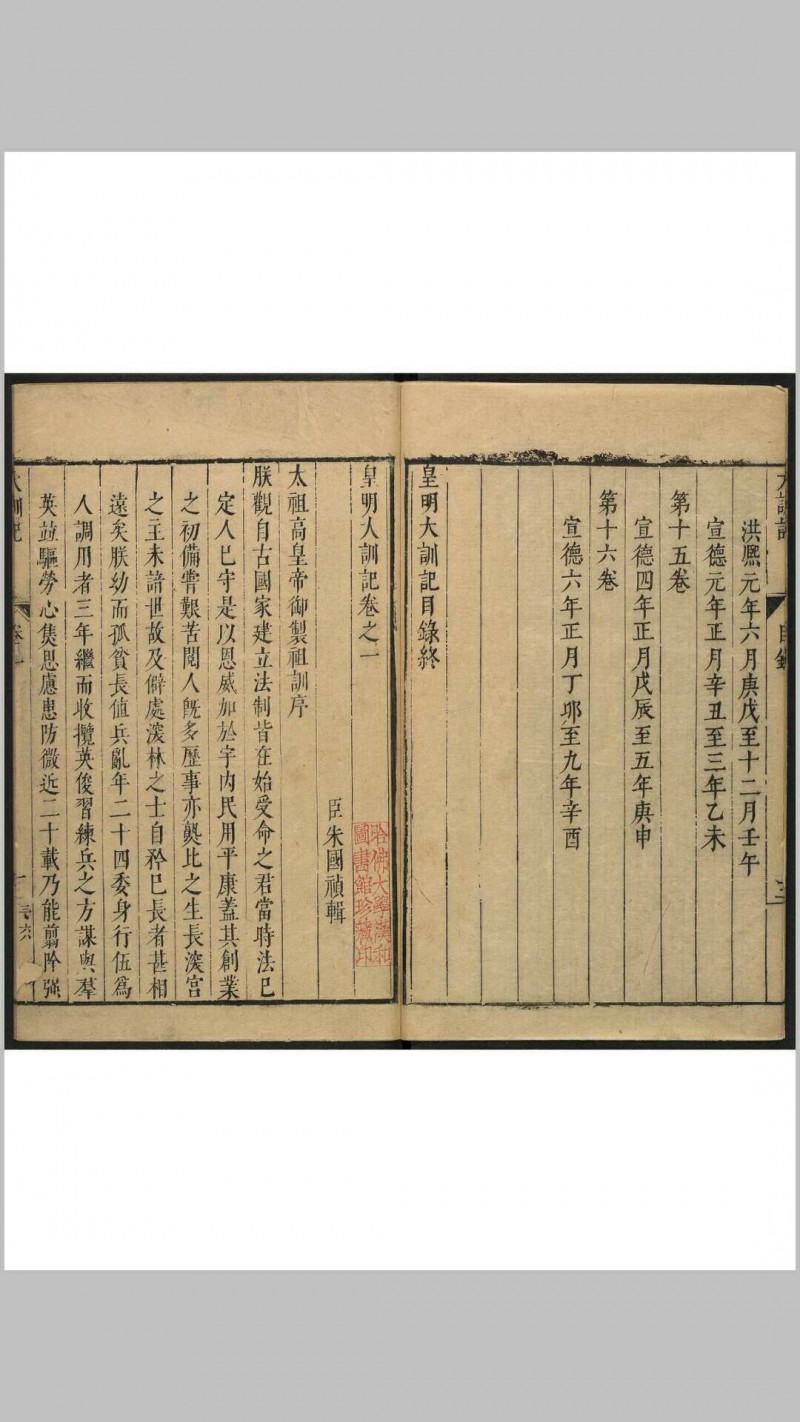 大訓記
目錄
三
洪熙元年六月庚戌至十二月壬午
宣德元年正月辛丑至三年乙未
第十五卷
宣德四年正月戊辰至五年庚申
第十六卷
宣德六年正月丁卯至九年辛酉
皇明大訓記目錄終
皇明大訓記卷之一
臣朱國禎輯
哈佛大學漢和
圖書館珍藏印
太祖高皇帝御製祖訓序
朕觀自古國家建立法制皆在始受命之君當時法已
定人已守是以恩威加於宇內民用平康蓋其創業
之初備嘗艱苦閱人旣多歷事亦熟比之生長深宮
之主未諳世故及僻處深林之士自矜已長者甚相
遠矣朕幼而孤貧長值兵亂年二十四委身行伍爲
人調用者三年繼而收攬英俊習練兵之方謀與羣
英並驅勞心焦思慮患防微近二十載乃能翦除强
大訓記
卷一
一